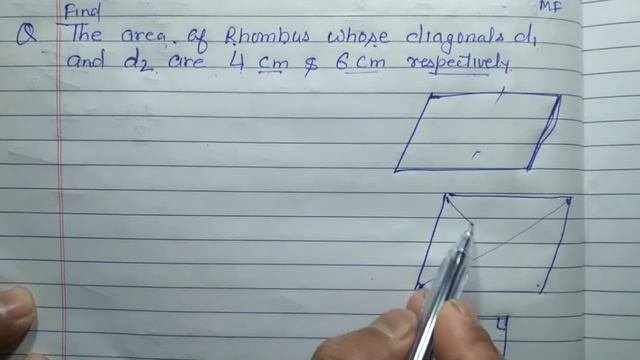 MF
Find
Q The area of Rhombus whose diagonals d1
and d2 are 4 cm & 6 cm respectively.
4